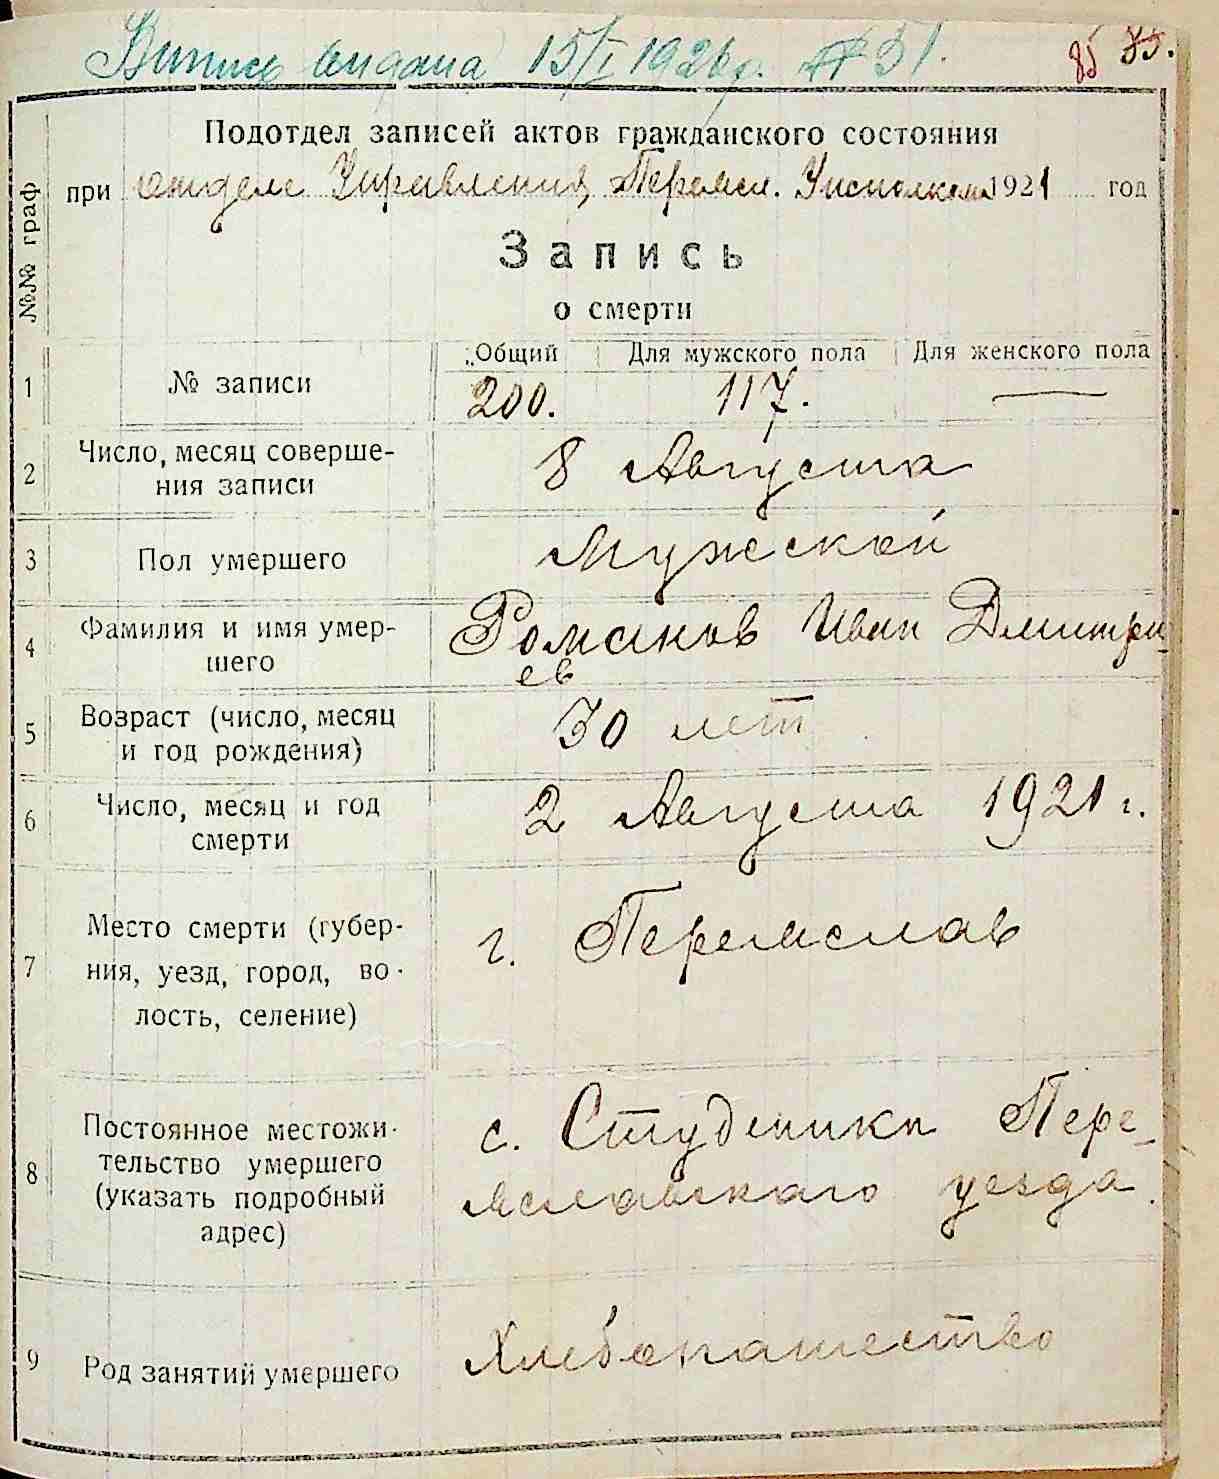 Выпись выдана 15/I 1926 г. № 51.
85 85.
Подотдел записей актов гражданского состояния
при отделе Управления Перемсл. Уисполкома 1921 год
№№ граф
Запись
о смерти
Общий Для мужского пола Для женского пола
1 № записи 200. 117. —
2 Число, месяц соверше-
ния записи 8 Августа
3 Пол умершего Мужской
4 Фамилия и имя умер-
шего Романов Иван Дмитри-
ев
5 Возраст (число, месяц
и год рождения) 30 лет
6 Число, месяц и год
смерти 2 Августа 1921 г.
7 Место смерти (губер-
ния, уезд, город, во-
лость, селение) г. Перемслав
8 Постоянное местожи-
тельство умершего
(указать подробный
адрес) с. Студеники Пере-
мславскаго уезда.
9 Род занятий умершего Хлебопашество